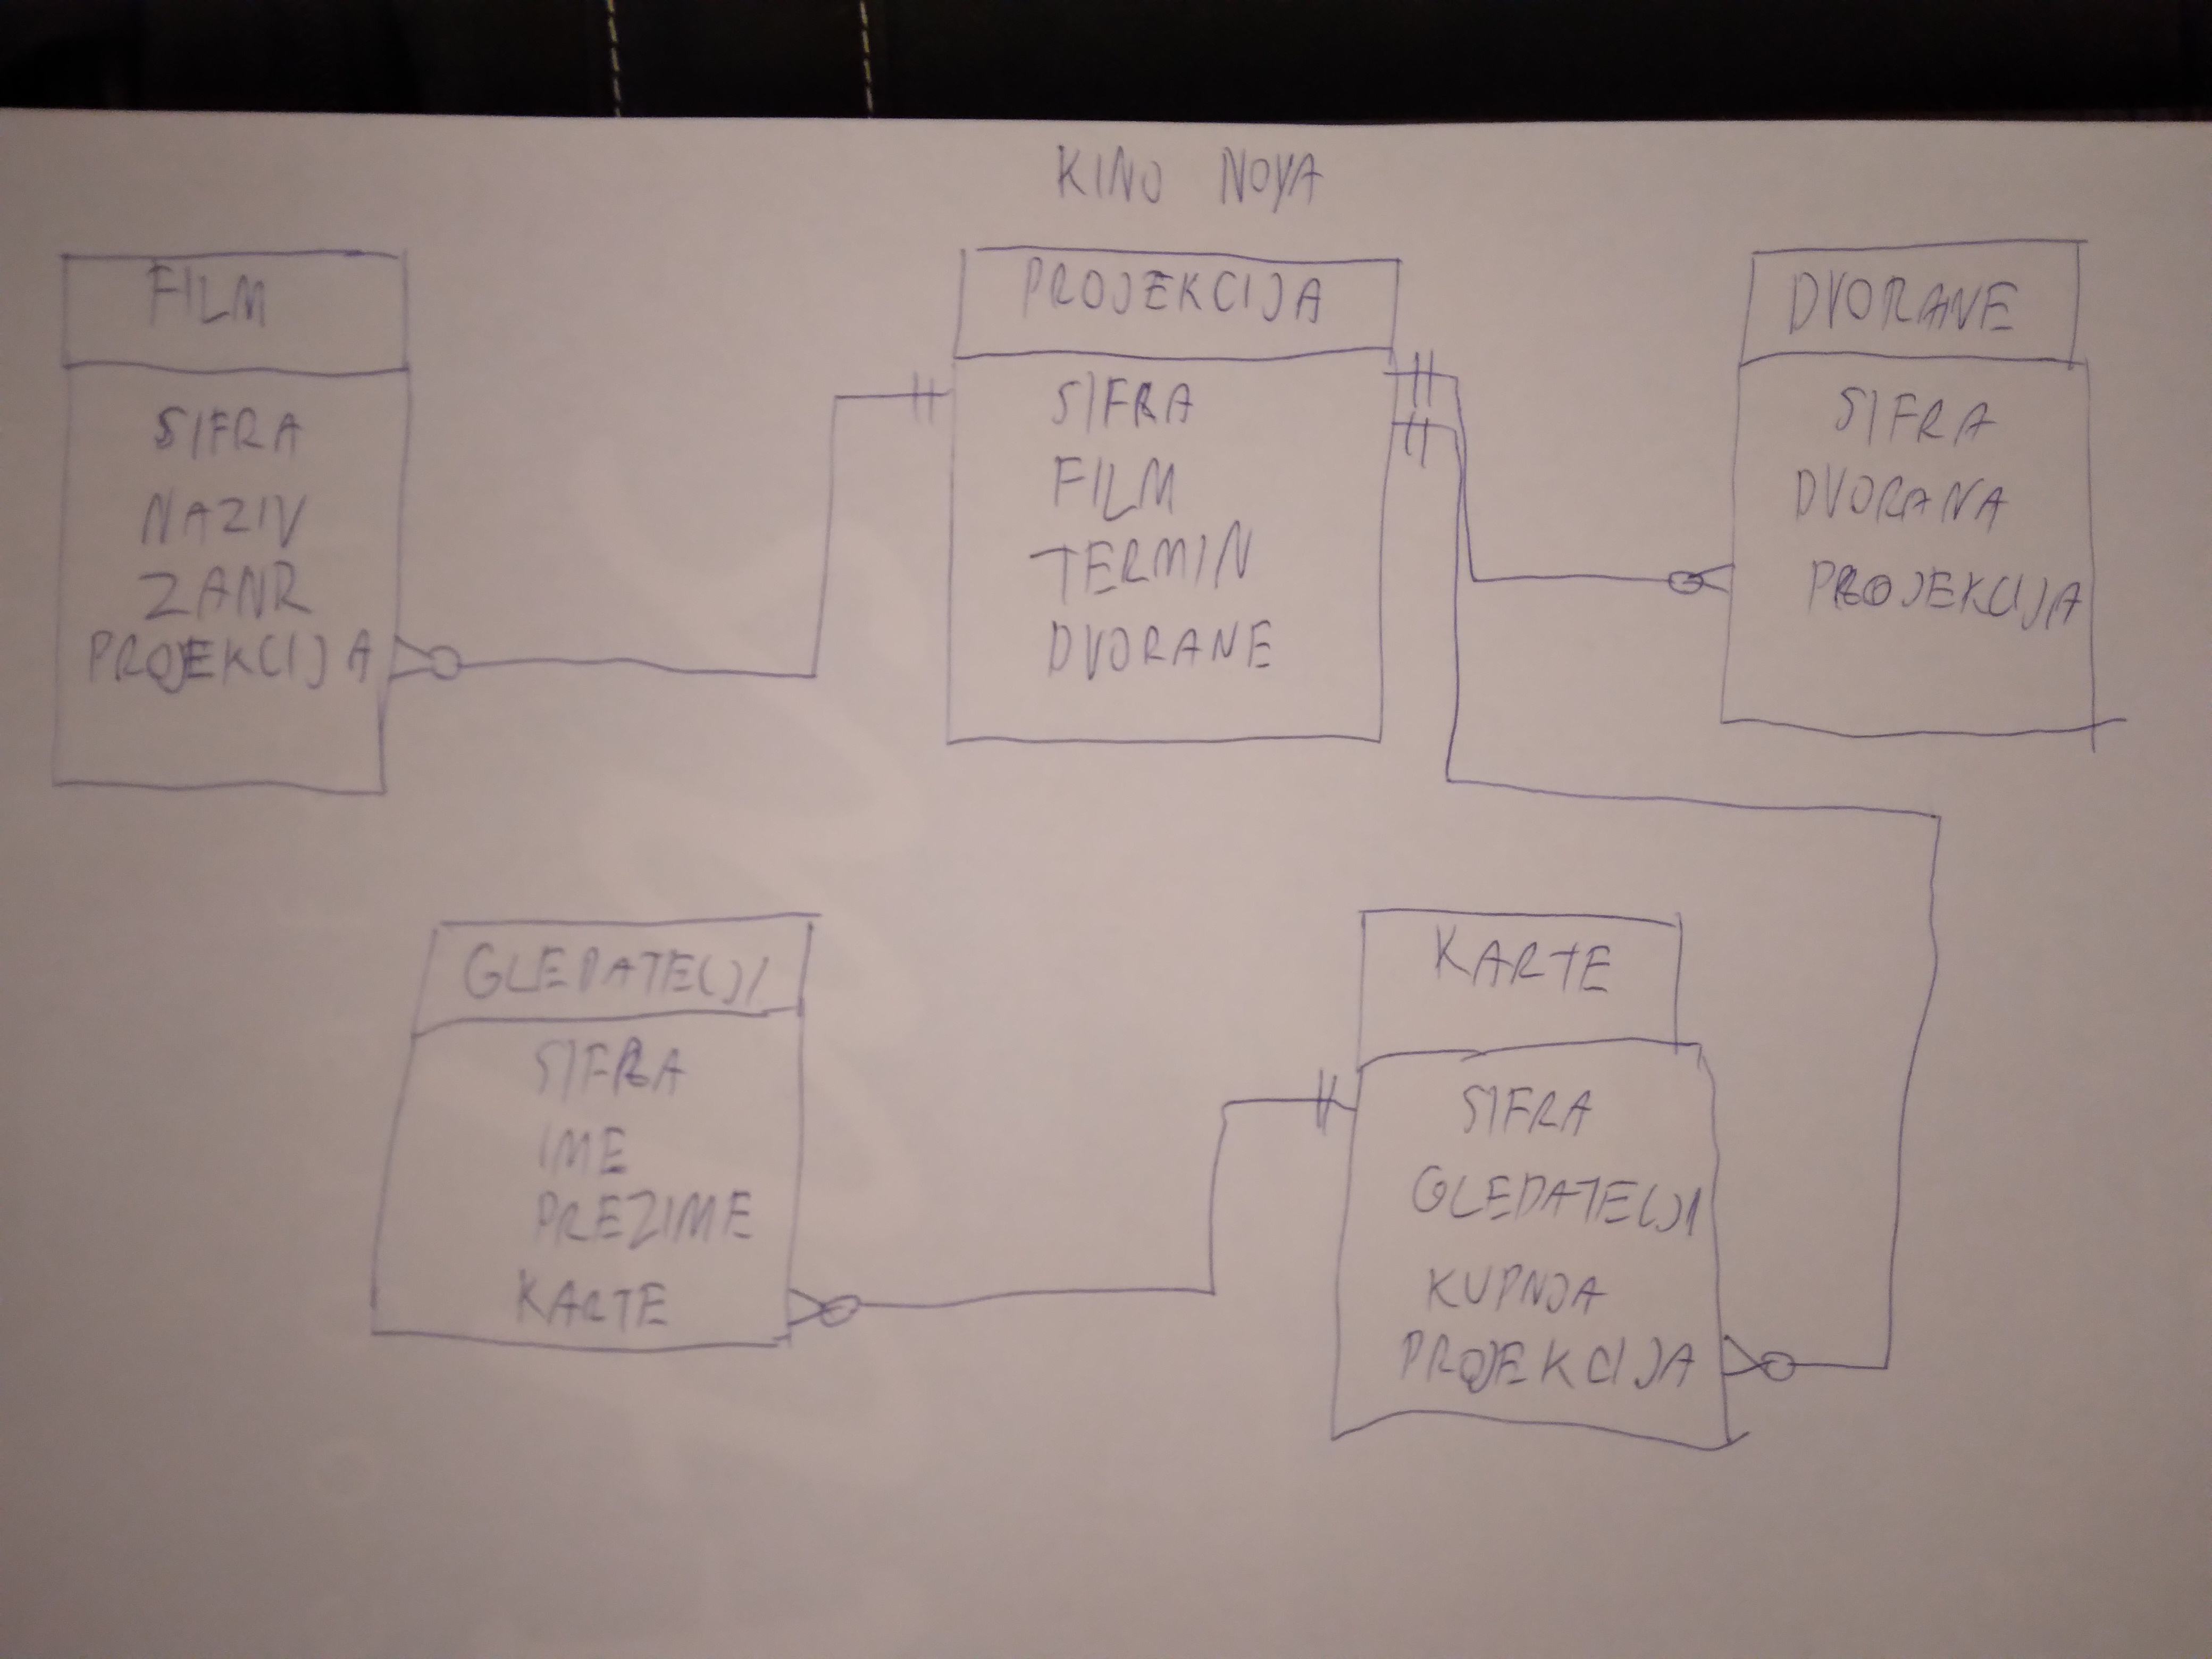 KINO NOVA
FILM
SIFRA
NAZIV
ZANR
PROJEKCIJA
PROJEKCIJA
SIFRA
FILM
TERMIN
DVORANE
DVORANE
SIFRA
DVORANA
PROJEKCIJA
GLEDATELJI
SIFRA
IME
PREZIME
KARTE
KARTE
SIFRA
GLEDATELJI
KUPNJA
PROJEKCIJA